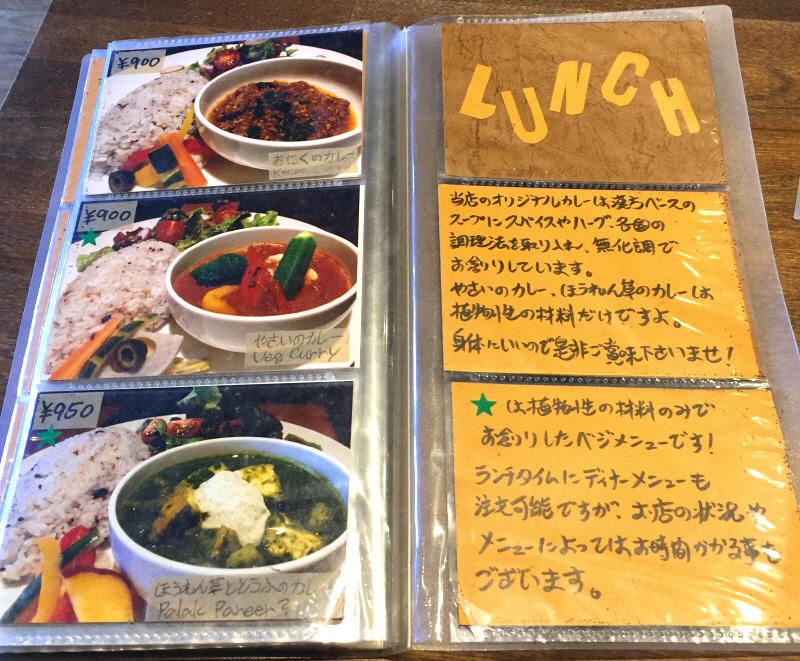 ¥900
おにくのカレー
Keema Curry
¥900
やさいのカレー
Veg Curry
¥950
ほうれん草ととうふのカレ
Palak Paneer?
LUNCH
当店のオリジナルカレーは漢方ベースの
スープにスパイスやハーブ、各国の
調理法を取り入れ、無化調で
お創りしています。
やさいのカレー、ほうれん草のカレーは
植物性の材料だけですよ。
身体にいいので是非ご賞味下さいませ！
★は植物性の材料のみで
お創りしたベジメニューです！
ランチタイムにディナーメニューも
注文可能ですが、お店の状況や
メニューによってはお時間かかる事も
ございます。